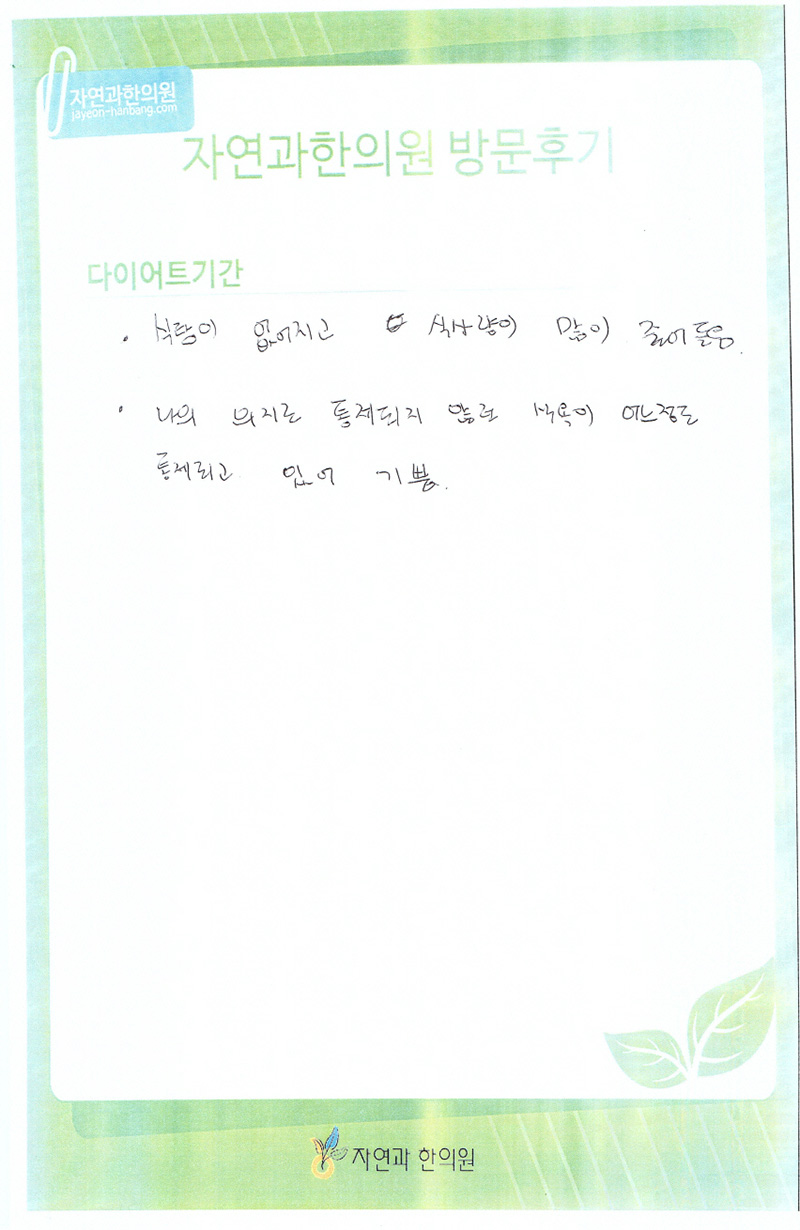 자연과한의원
jayeon-hanbang.com
자연과한의원 방문후기
다이어트기간
· 식탐이 없어지고 식사량이 많이 줄어들음.
· 나의 의지로 통제되지 식욕이 어느정도
통제되고 있어 기쁨.
자연과 한의원